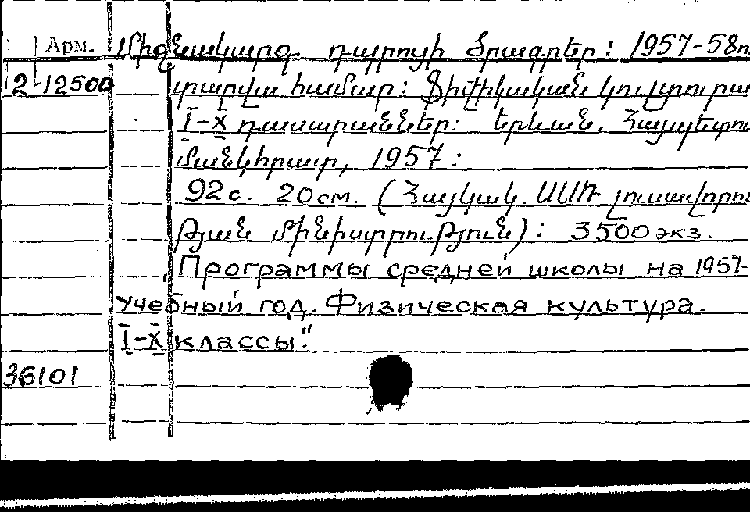 Арм. Միջնակարգ դպրոցի ծրագրեր: 1957-58 ո
2-12500 տարվա համար: Ֆիզիկական կուլտուրա
I-X դասարաններ: Երևան, Հայպետու
մանկհրատ, 1957:
92 с. 20 см. (Հայկակ. ՍՍՌ լուսավորու
թյան մինիստրություն): 3500 экз.
„Программы средней школы на 1957-
учебный год. Физическая культура.
I-X классы."
36101